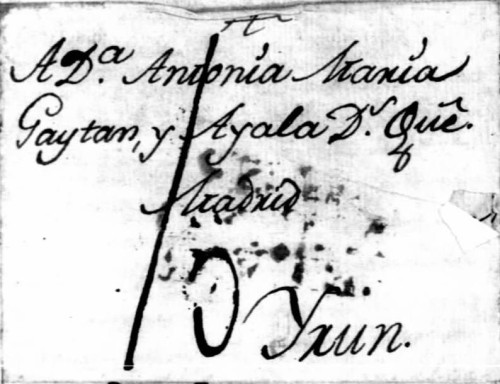 A D.ª Antonia Maria
Gaytan, y Ayala D.s Que.
Madrid
Yrun.